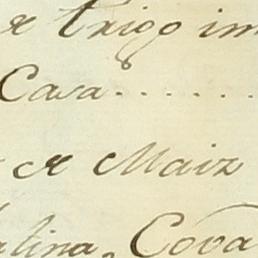 de trigo im
Casa.......
de Maiz
alina, Cova